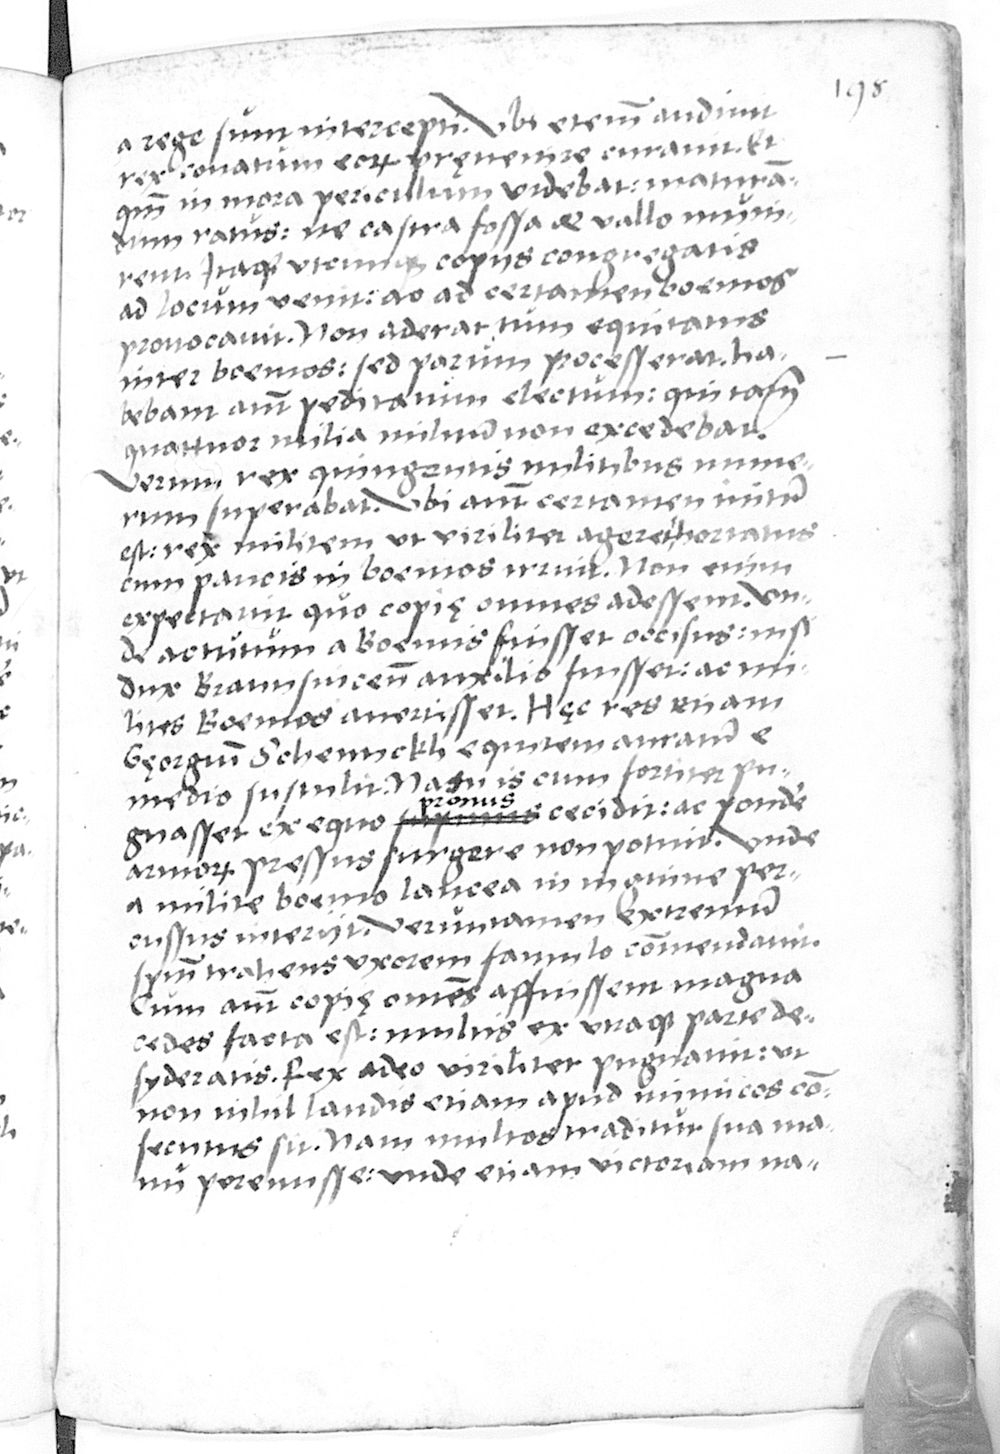 198
a rege sunt intercepti. Vbi eteni͞ audiuit
rex conatum eoꝝ pręuenire curauit. Et
qm͞ in mora periculum videbat: maturā-
dum ratus: ne castra fossa & vallo muni-
rent. Itaqꝫ vtcunqꝫ copijs congregatis
ad locum venit: ac ad certamen boemos
prouocauit. Non aderat tum equitatus
inter boemos: sed parum processerat. ha-
bebant aut͞ peditatum electum: qui tam͞
quattuor milia militum͞ non excedebat.
Verum rex quingentis militibus nume-
rum superabat. Vbi aut͞ certamen initu͞
est: rex militem vt viriliter ageret hortatus
cum paucis in boemos irruit. Non enim
expectauit quo copię omnes adessent. Vn-
de actutum a Boemis fuisset occisus: nisi
dux Braunsuicen͞ auxilio fuisset: ac mi-
lites Boemos auertisset. Hęc res etiam
Gęorgiu͞ Schennckh equitem auratu͞ e
medio sustulit. Nam is cum fortiter pu-
gnasset ex equo pronus cecidit: ac ponde͞
armoꝝ pressus surgere non potuit. Vnde
a milite boemo lancea in inguine per-
cussus interijt. Veruntamen extremu͞
spm͞ trahens vxorem famulo com͞endauit.
Cum aut͞ copię omn͞es affuissent magna
cedes facta est: multis ex vtraqꝫ parte de-
syderatis. Rex adeo viriliter pugnauit: vt
non nihil laudis etiam apud inimicos co͞-
secutus sit. Nam multos traditur sua ma-
nu peremisse: vnde etiam victoriam na-